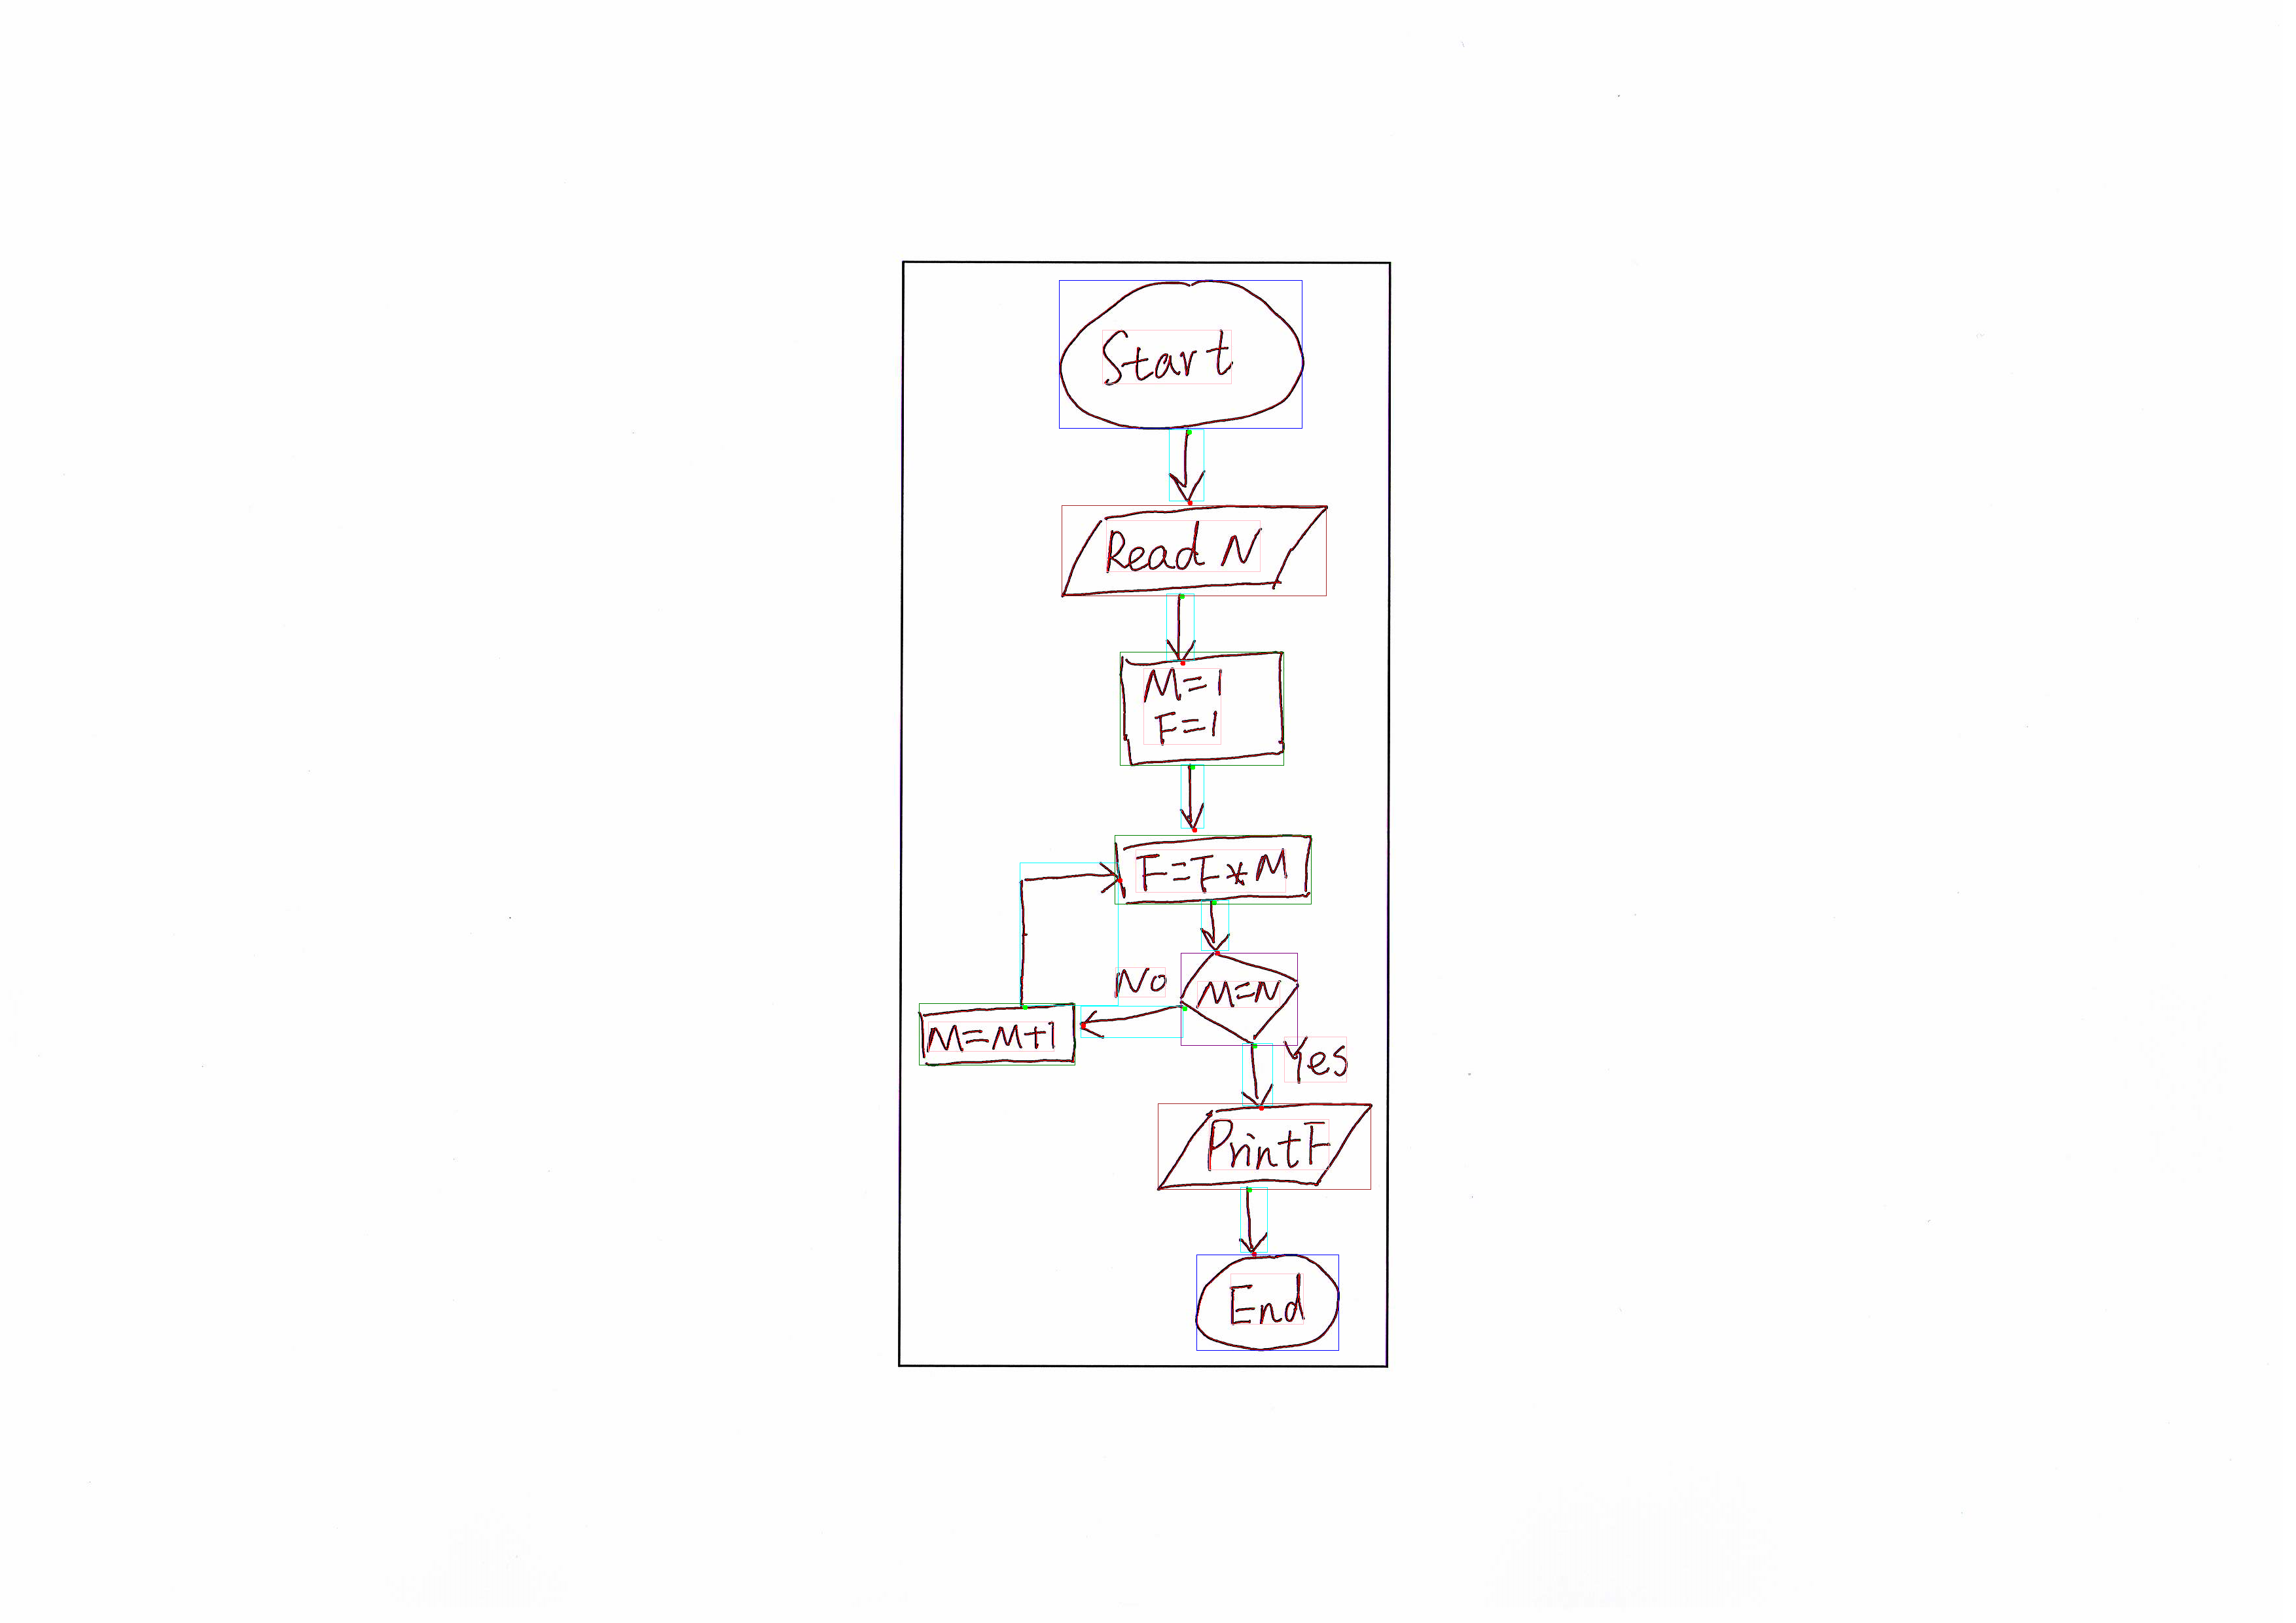 Start
Read N
M=1
F=1
F=F*M
No
M=N
M=M+1
Yes
PrintF
End